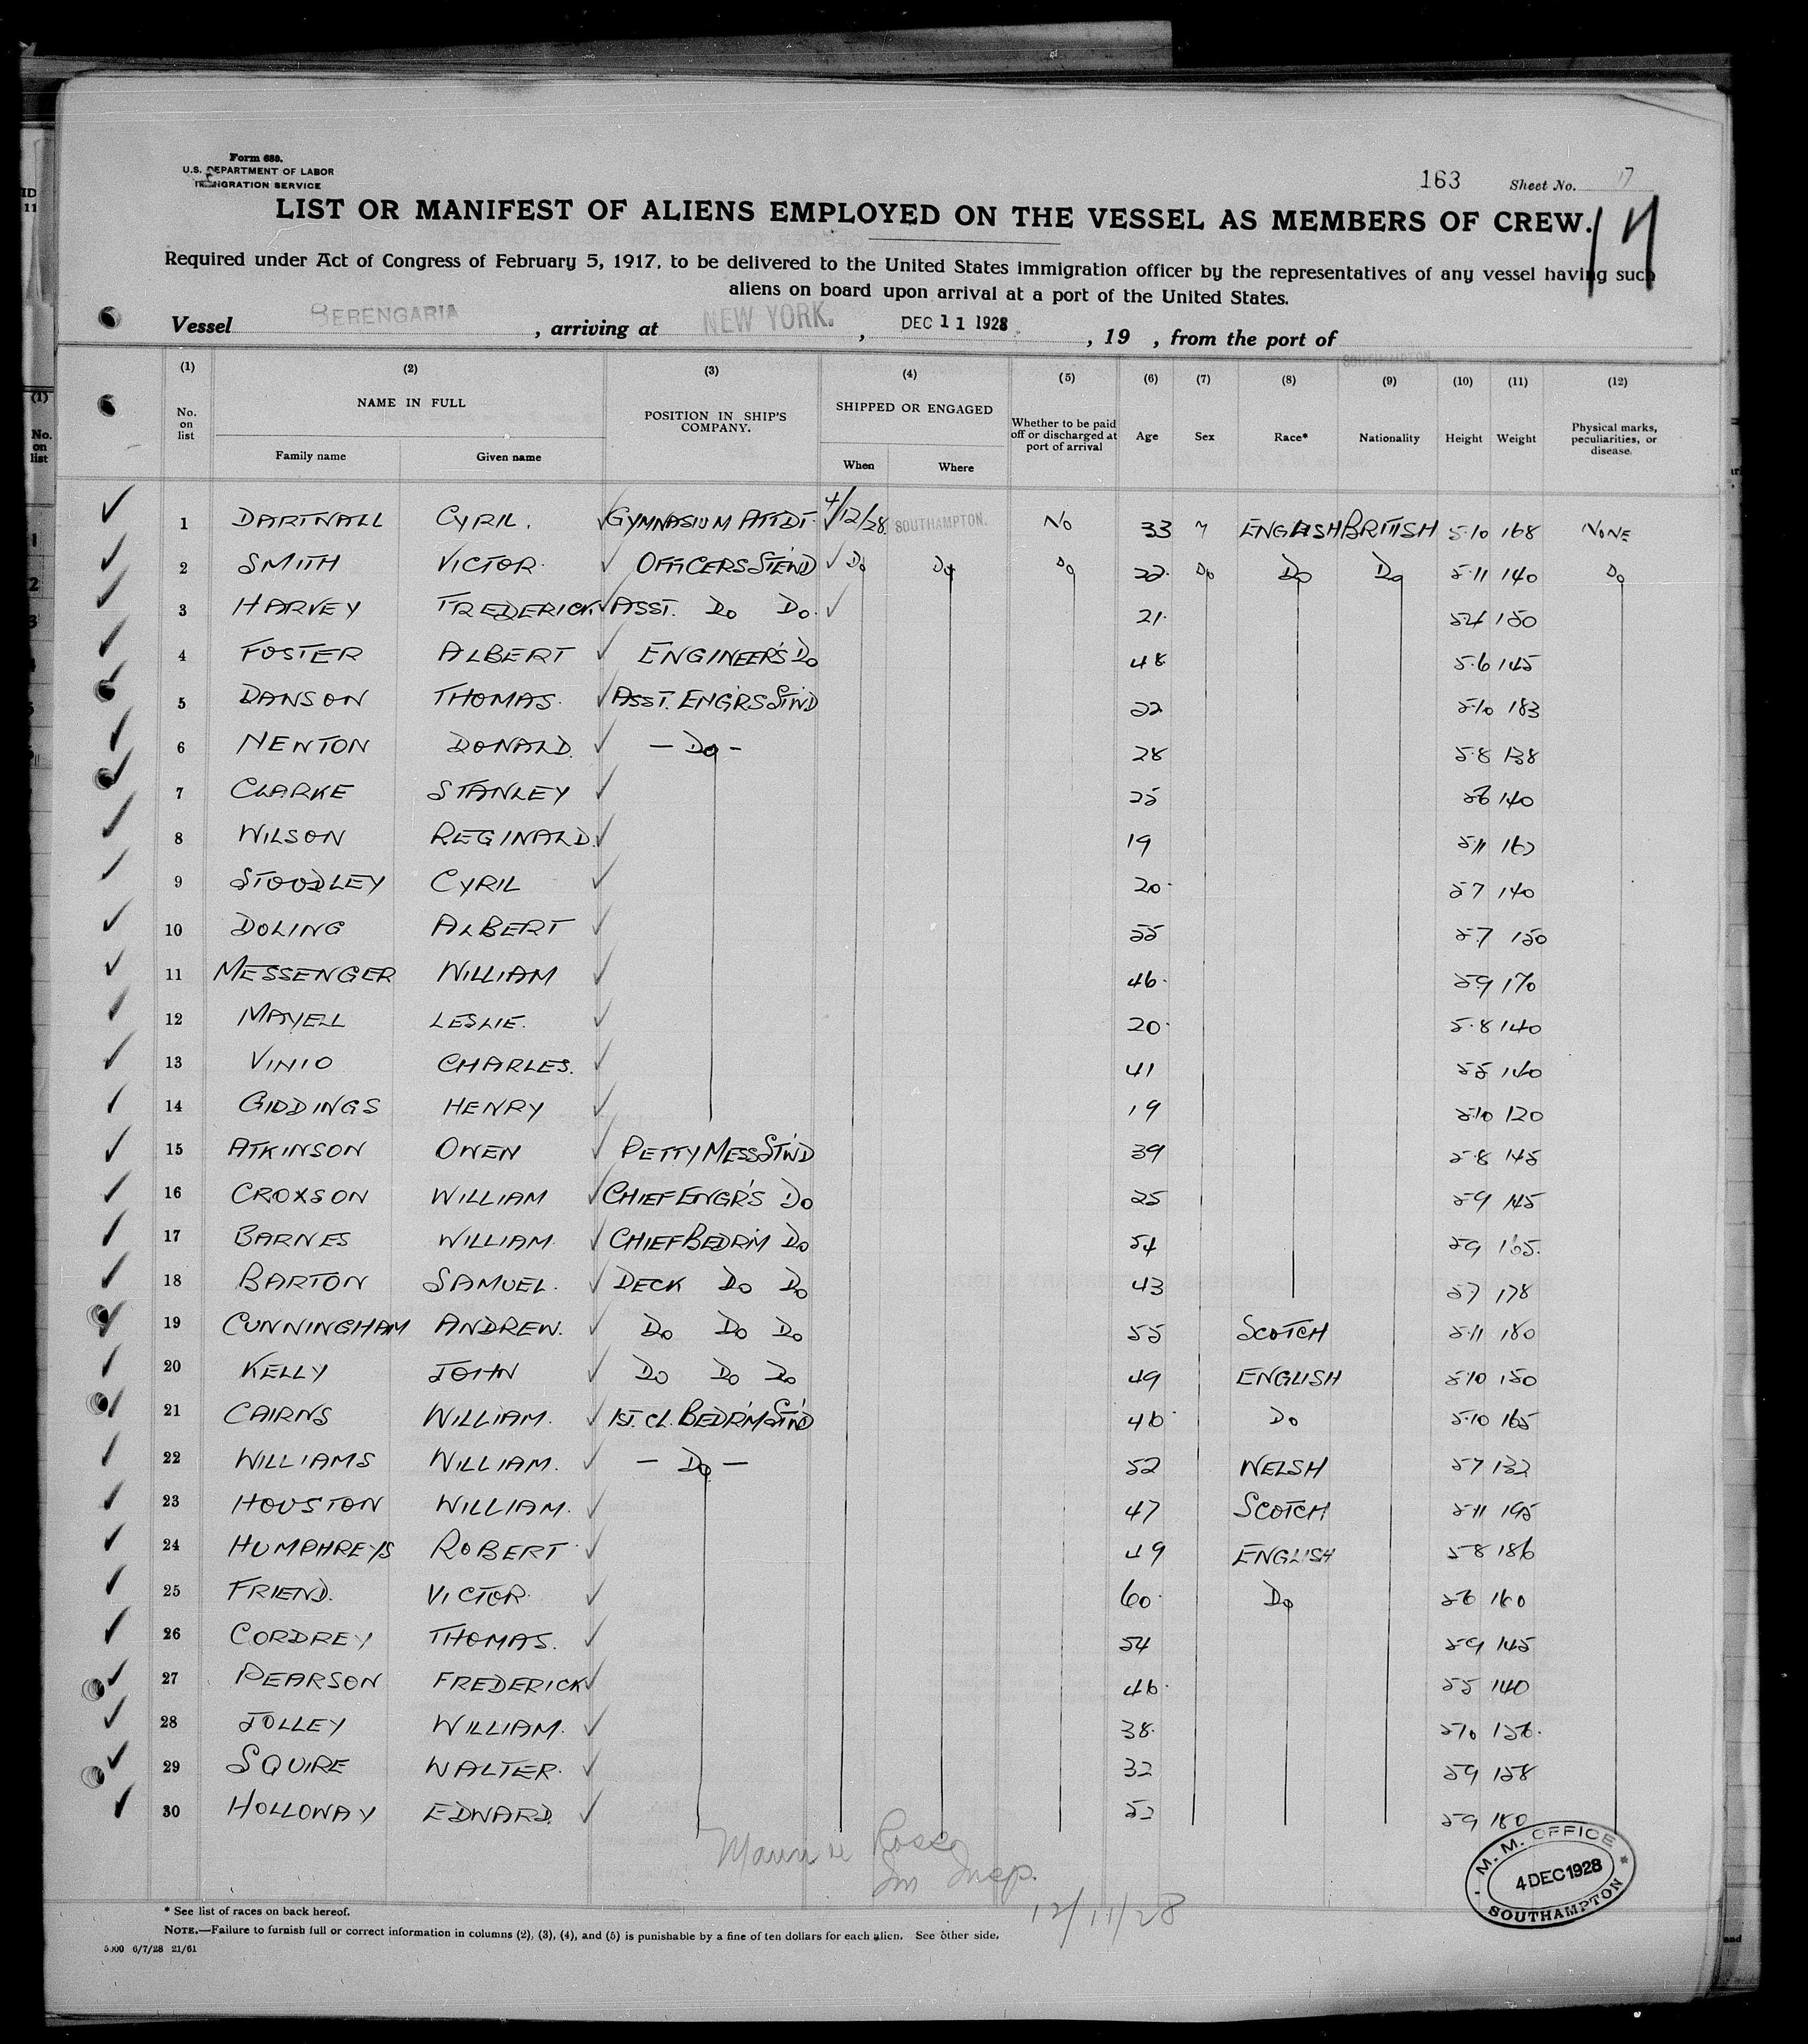 Form 680.
U.S. DEPARTMENT OF LABOR
IMMIGRATION SERVICE
163 Sheet No. 17
LIST OR MANIFEST OF ALIENS EMPLOYED ON THE VESSEL AS MEMBERS OF CREW.
Required under Act of Congress of February 5, 1917, to be delivered to the United States immigration officer by the representatives of any vessel having such
aliens on board upon arrival at a port of the United States.
Vessel BERENGARIA, arriving at NEW YORK., DEC 11 1928, 19 , from the port of SOUTHAMPTON
(1) (2) (3) (4) (5) (6) (7) (8) (9) (10) (11) (12)
No. on list NAME IN FULL Family name Given name POSITION IN SHIP'S COMPANY. SHIPPED OR ENGAGED When Where Whether to be paid off or discharged at port of arrival Age Sex Race* Nationality Height Weight Physical marks, peculiarities, or disease.
1 DARTNALL CYRIL. GYMNASIUM ATTDT. 4/12/28 SOUTHAMPTON. NO 33 M ENGLISH BRITISH 5·10 168 NONE
2 SMITH VICTOR. OFFICERS STEW'D DO DO DO 22 DO DO DO 5·11 140 DO
3 HARVEY FREDERICK ASST. DO DO. 21. 54 150
4 FOSTER ALBERT ENGINEER'S DO 48 5·6 145
5 DANSON THOMAS. ASST. ENG'RS ST'WD 22 5·10 183
6 NEWTON DONALD. — DO — 28 5·8 138
7 CLARKE STANLEY 25 56 140
8 WILSON REGINALD. 19 5·11
9 STOODLEY CYRIL 20 57 140
10 DOLING ALBERT 55 57 150
11 MESSENGER WILLIAM 46. 59 170
12 MAYELL LESLIE. 20 5·8 140
13 VINIO CHARLES. 41 55 140
14 GIDDINGS HENRY 19 5·10 120
15 ATKINSON OWEN PETTY MESS ST'WD 39 5·8 145
16 CROXSON WILLIAM CHIEF ENGR'S DO 25 59 145
17 BARNES WILLIAM. CHIEF BEDR'M DO 54 59 165.
18 BARTON SAMUEL. DECK DO DO 43 57 178
19 CUNNINGHAM ANDREW. DO DO DO 55 SCOTCH 5·11 180
20 KELLY JOHN DO DO DO 49 ENGLISH 5·10 150
21 CAIRNS WILLIAM. 1ST. CL. BEDR'M ST'WD 46 DO 5·10 165
22 WILLIAMS WILLIAM. — DO — 52 WELSH 57 132
23 HOUSTON WILLIAM. 47 SCOTCH 5·11 195
24 HUMPHREYS ROBERT 49 ENGLISH 58 186
25 FRIEND. VICTOR. 60 DO 56 160
26 CORDREY THOMAS. 54 59 145
27 PEARSON FREDERICK 46. 55 140
28 JOLLEY WILLIAM. 38. 5·10
29 SQUIRE WALTER. 32 59 158
30 HOLLOWAY EDWARD. 59 180
Im Insp.
12/11/28
I.M.M. OFFICE 4 DEC 1928 SOUTHAMPTON
* See list of races on back hereof.
NOTE.—Failure to furnish full or correct information in columns (2), (3), (4), and (5) is punishable by a fine of ten dollars for each alien. See other side.
5000 6/7/28 21/61